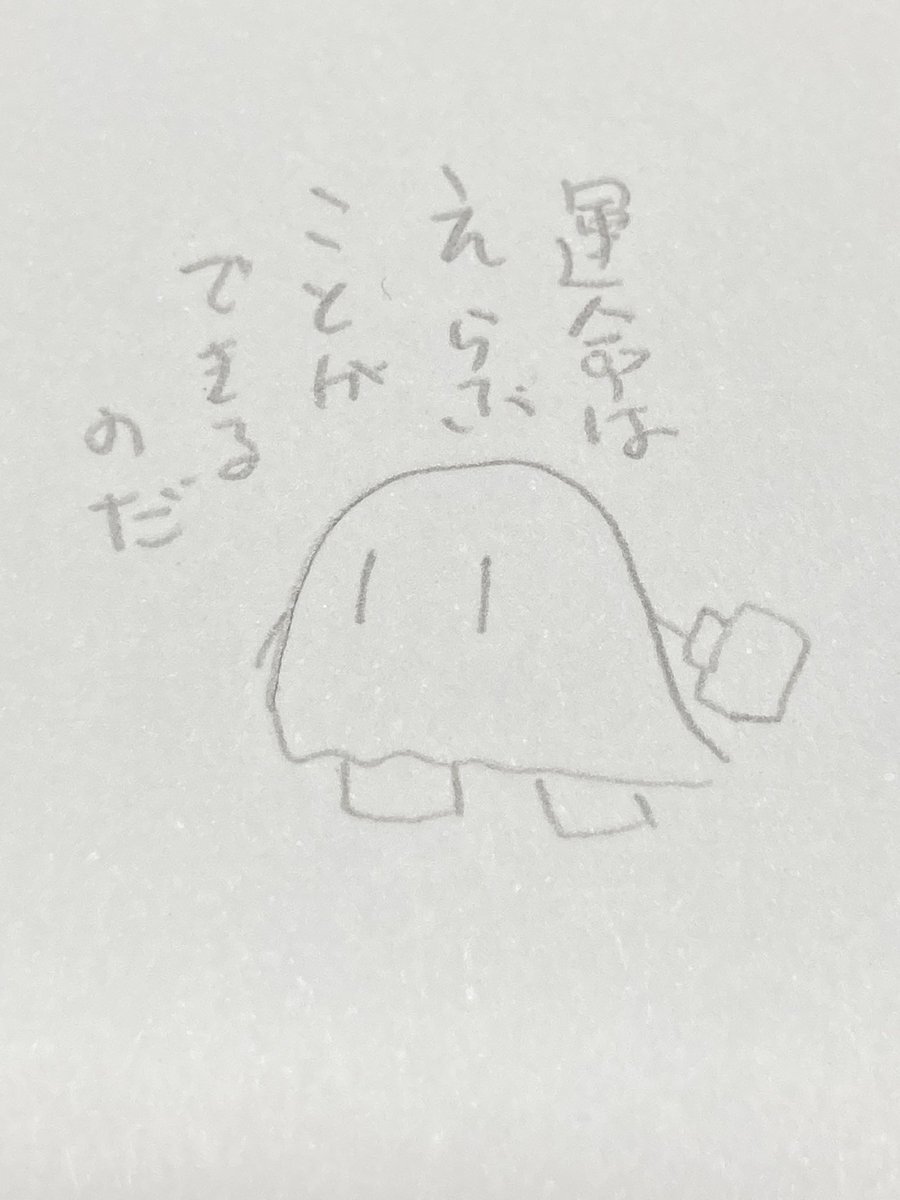 運命は
えらぶ
ことが
できる
のだ